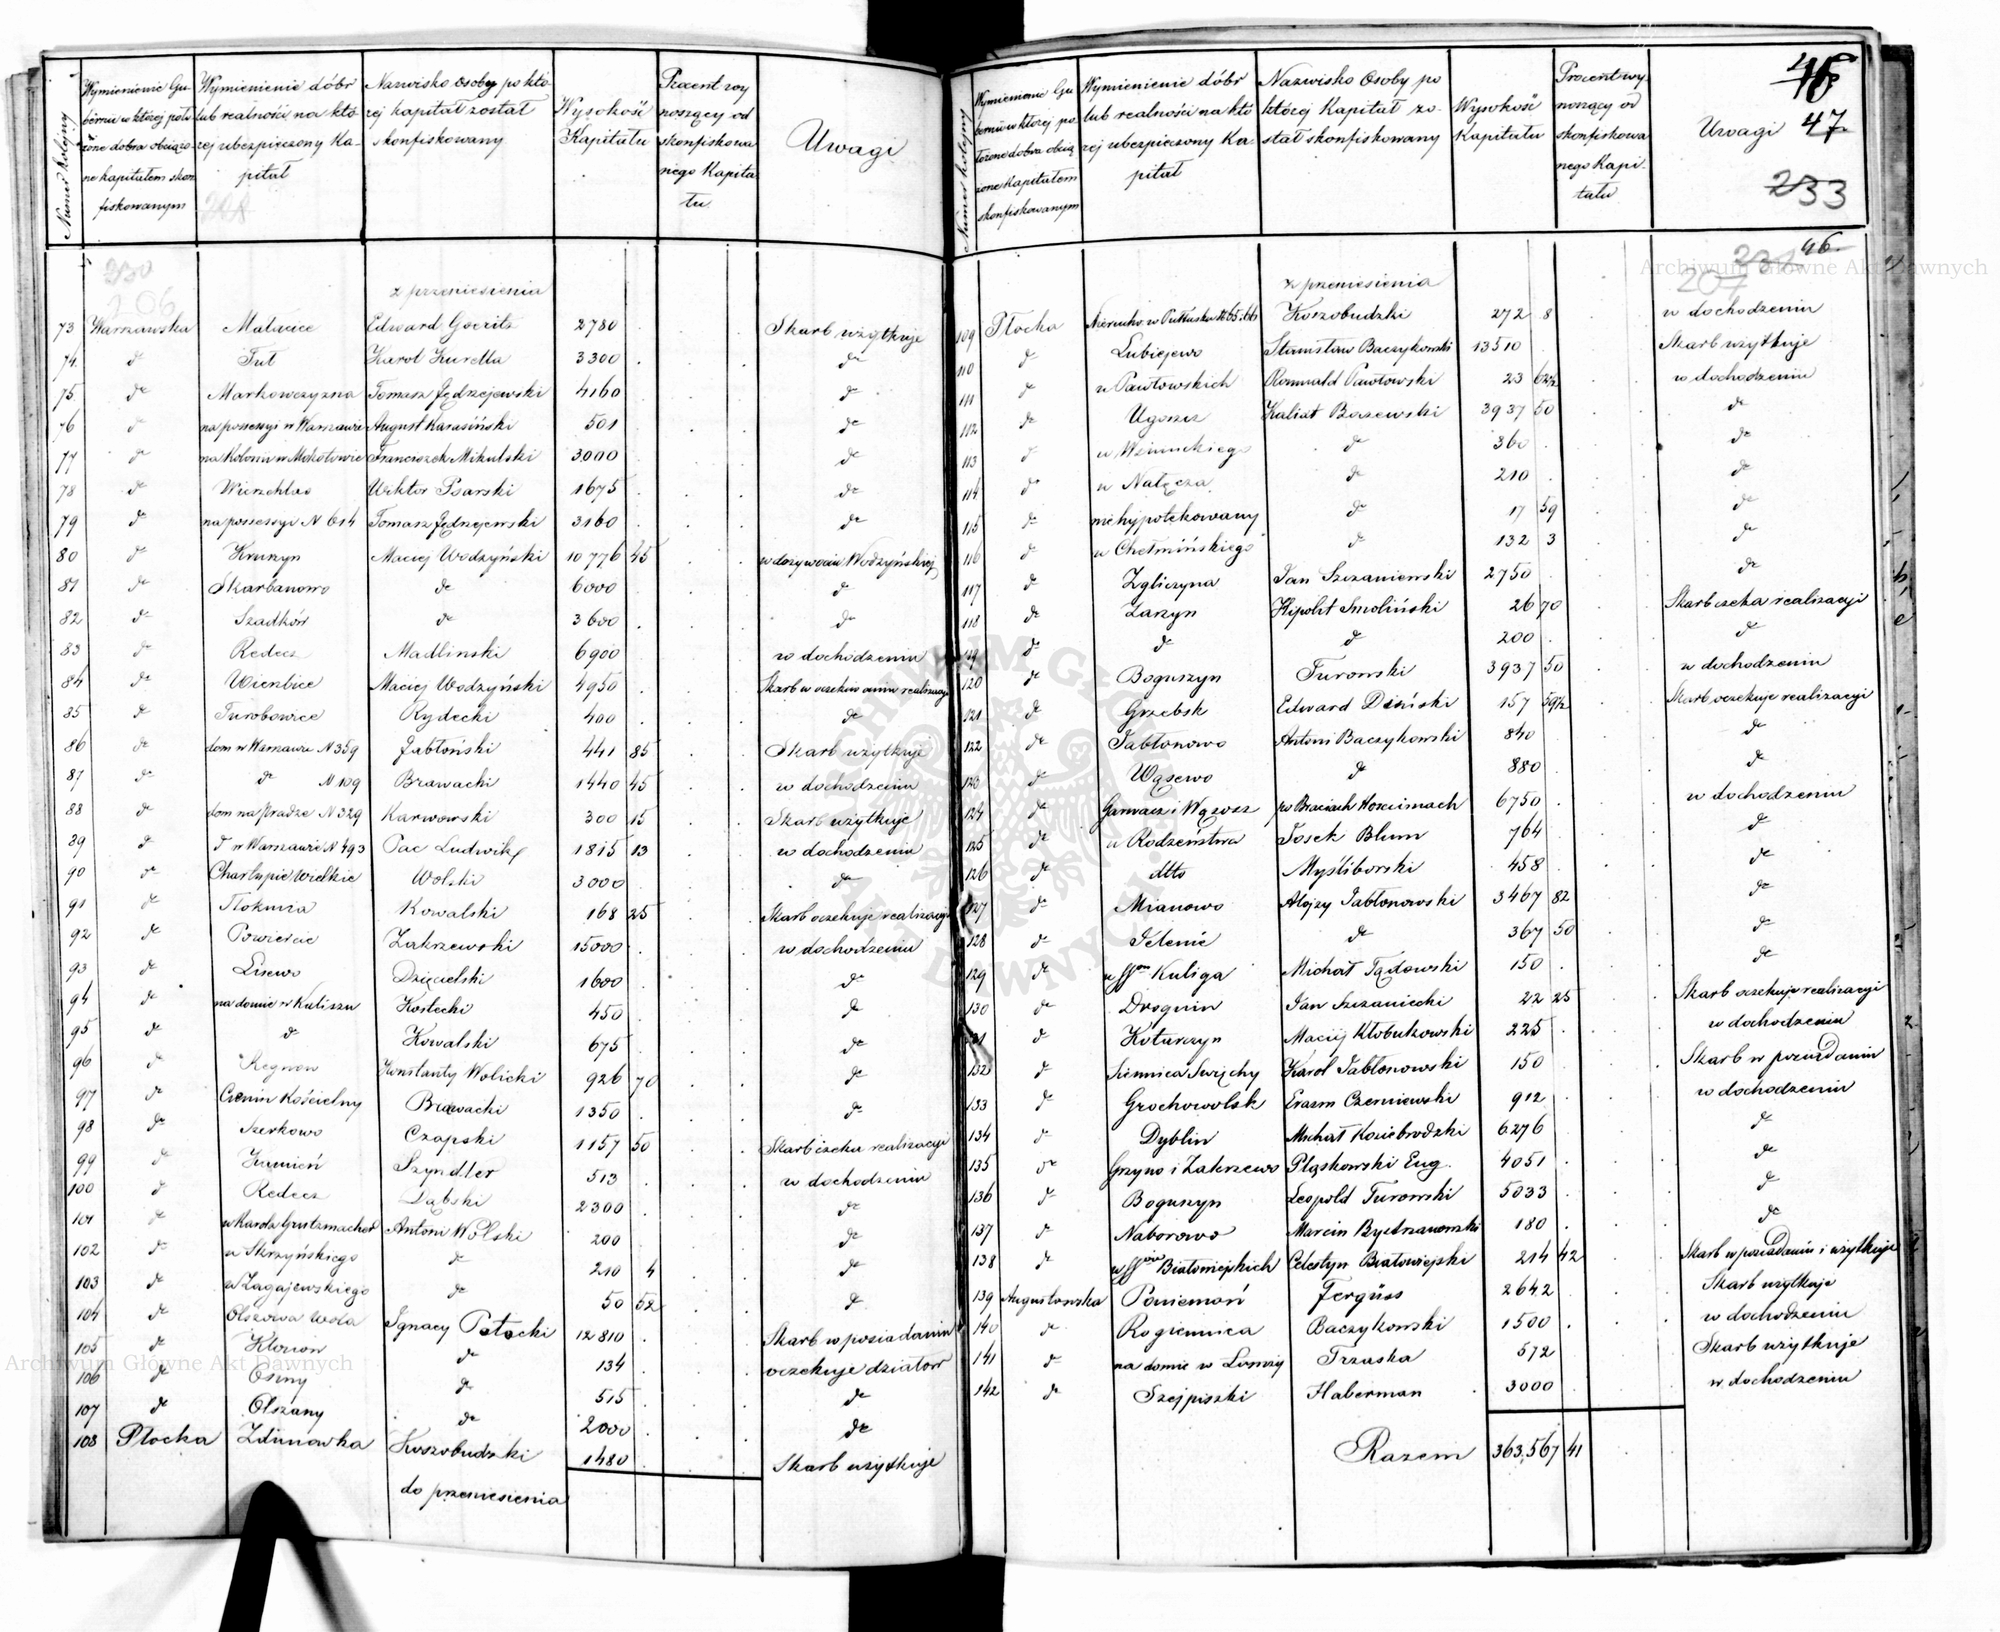 Numer kolejny
Wymienienie Gu-
bernii w której poło
żone dobra obciążo-
ne kapitałem skon
fiskowanym
Wymienienie dóbr
lub realności na któ
rej ubezpieczony Ka-
pitał
Nazwisko osoby po któ-
rej kapitał został
skonfiskowany
Wysokość
Kapitału
Procent wy
noszący od
skonfiskowa
nego Kapita
łu
Uwagi
z przeniesienia
73 Warszawska Edward Goeritz 2780 Skarb użytkuje
74 d° Tut Karol Kurella 3300 d°
75 d° Markowczyzna Tomasz Jędrzejewski 4160 d°
76 d° na possesyi w Warszawie August Karasiński 501 d°
77 d° na Kolonii w Mokotowie Franciszek Mikulski 3000 d°
78 d° Wierzchlas Wiktor Psarski 1675 d°
79 d° na possessyi N 614 Tomasz Jędrzejewski 3160 d°
80 d° Kruszyn Maciej Wodzyński 10776 45 w dożywociu Wodzyńskiej
81 d° Skarbanowo d° 6000 d°
82 d° Szadków d° 3600 d°
83 d° Redecz Madlinski 6900 w dochodzeniu
84 d° Wienbice Maciej Wodzyński 4950 Skarb w oczekiwaniu realizacyi
85 d° Turobowice Rydecki 400 d°
86 d° dom w Warszawie N 359 Jabłoński 441 85 Skarb użytkuje
87 d° d° N 109 Brawacki 1440 45 w dochodzeniu
88 d° dom na Pradze N 329 Karwowski 300 15 Skarb użytkuje
89 d° d° w Warszawie N 493 Pac Ludwik 1815 13 w dochodzeniu
90 d° Charłupie Wielkie Wolski 3000 d°
91 d° Tłokinia Kowalski 168 25 Skarb oczekuje realizacyi
92 d° Powiercie Zakrzewski 15000 w dochodzeniu
93 d° Lisewo Dzięcielski 1600 d°
94 d° na domie w Kaliszu Kostecki 450 d°
95 d° d° Kowalski 675 d°
96 d° Regnow Konstanty Wolicki 926 70 d°
97 d° Czenin Kościelny Brawacki 1350 d°
98 d° Szerkowo Czapski 1157 50 Skarb czeka realizacyi
99 d° Kamień Szyndler 513 w dochodzeniu
100 d° Redecz Dąbski 2300 d°
101 d° u Karola Grutzmacher Antoni Wolski 200 d°
102 d° u Skrzyńskiego d° 210 4 d°
103 d° u Zagajewskiego d° 50 52 d°
104 d° Olszowa Wola Ignacy Potocki 12810 Skarb w posiadaniu
105 d° Kłonow d° 134 oczekuje działów
106 d° Osiny d° 515 d°
107 d° Olszany d° 2000 d°
108 Płocka Zdunowka Koszobudzki 1480 Skarb użytkuje
do przeniesienia
Numer kolejny
Wymienienie Gu
bernii w której po
łożone dobra obcią
żone kapitałem
skonfiskowanym
Wymienienie dóbr
lub realności na któ
rej ubezpieczony Ka-
pitał
Nazwisko Osoby po
której Kapitał zo-
stał skonfiskowany
Wysokość
Kapitału
Procent wy
noszący od
skonfiskowa
nego Kapi-
tału
Uwagi
46
47
233
46.
z przeniesienia
109 Płocka Nieruch w Pułtusku N 65.66 Koszobudzki 272 8 w dochodzeniu
110 d° Lubiejewo Stanisław Baczykowski 13510 Skarb użytkuje
111 d° u Pawłowskich Romuald Pawłowski 23 62½ w dochodzeniu
112 d° Ugoszcz Kalixt Borzewski 3937 50 d°
113 d° d° 360 d°
114 d° u Nałęcza d° 210 d°
115 d° niehypotekowany d° 17 59 d°
116 d° u Chełmińskiego d° 132 3 d°
117 d° Zgliczyna Jan Szczaniewski 2750 d°
118 d° Zarzyn Hipolit Smoliński 26 70 Skarb czeka realizacyi
119 d° d° d° 200 d°
120 d° Boguszyn Turowski 3937 50 w dochodzeniu
121 d° Grzebsk Edward Dziński 157 59½ Skarb oczekuje realizacyi
122 d° Jabłonowo Antoni Baczykowski 840 d°
123 d° Wąsewo d° 880 d°
124 d° Garwacz i Wązosz po Braciach Kościmach 6750 w dochodzeniu
125 d° u Rodzeństwa Josek Blum 764 d°
126 d° dtto Myśliborski 458 d°
127 d° Mianowo Alojzy Jabłonowski 3467 82 d°
128 d° Jelenie d° 367 50 d°
129 d° u SSrów Kuliga Michał Tądowski 150 d°
130 d° Drognin Jan Szczaniecki 22 25 Skarb oczekuje realizacyi
131 d° Kotarczyn Maciej Kłobukowski 225 w dochodzeniu
132 d° Siennica Święchy Karol Jabłonowski 150 Skarb w posiadaniu
133 d° Grochowolsk Erazm Czerniewski 912 w dochodzeniu
134 d° Dyblin Michał Koziebrodzki 6276 d°
135 d° Gzyno i Zakrzewo Pląskowski Eug. 4051 d°
136 d° Boguszyn Leopold Turowski 5033 d°
137 d° Naborowo Marcin Bystrzanowski 180 d°
138 d° u SSrów Białowiejskich Celestyn Białowiejski 214 42 Skarb w posiadaniu i użytkuje
139 Augustowska Poniemoń Fergüss 2642 Skarb użytkuje
140 d° Rogiennica Baczykowski 1500 w dochodzeniu
141 d° na domie w Łomży Trzaska 572 Skarb użytkuje
142 d° Szejpiszki Haberman 3000 w dochodzeniu
Razem 363,567 41
Archiwum Główne Akt Dawnych
Archiwum Główne Akt Dawnych